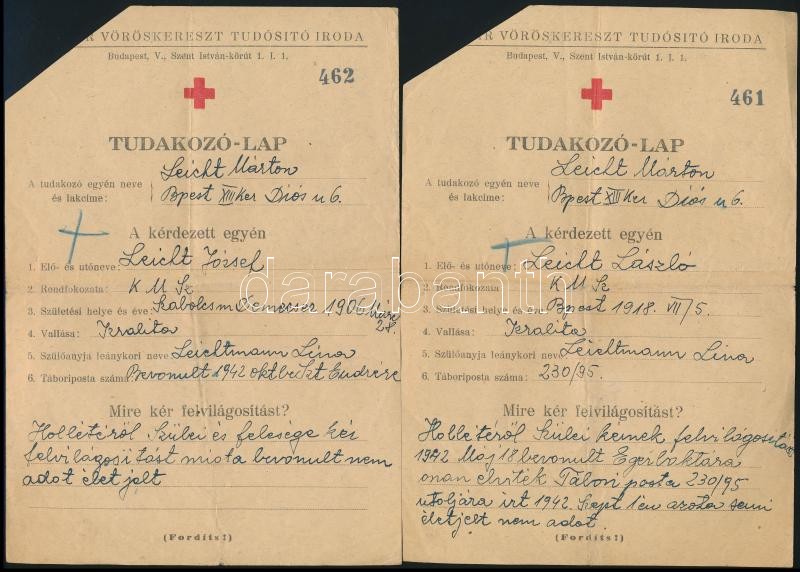 R VÖRÖSKERESZT TUDÓSITÓ IRODA
Budapest, V., Szent István-körút 1. I. 1.
462
TUDAKOZÓ-LAP
A tudakozó egyén neve
és lakcíme:
Leicht Márton
Bpest XIII Ker Diós u 6.
A kérdezett egyén
1. Elő- és utóneve: Leicht József
2. Rendfokozata: K M Sz
3. Születési helye és éve: Szabolcsm Demecser 1906
28.
4. Vallása: Izralita
5. Szülőanyja leánykori neve Leichtmann Lina
6. Táboriposta száma: Bevonult 1942 okt
Mire kér felvilágosítást?
Hollétéről Szülei és felesége kér
felvilágositást miota bevonult nem
adot élet jelt
(Fordíts!)
R VÖRÖSKERESZT TUDÓSITÓ IRODA
Budapest, V., Szent István-körút 1. I. 1.
461
TUDAKOZÓ-LAP
A tudakozó egyén neve
és lakcíme:
Leicht Márton
Bpest XIII Ker Diós u 6.
A kérdezett egyén
1. Elő- és utóneve: Leicht László
2. Rendfokozata K M Sz
3. Születési helye és éve: Bpest 1918. VII/5.
4. Vallása: Izralita
5. Szülőanyja leánykori neve Leichtmann Lina
6. Táboriposta száma: 230/95.
Mire kér felvilágosítást?
Hollétéről Szülei kérnek felvilágositást
1942 Máj 18 bevonult Egerbaktára
onan elvitték Tábori posta 230/95
utoljára irt 1942. Szept 1én azota semi
életjelt nem adot.
(Fordíts!)
darabanth